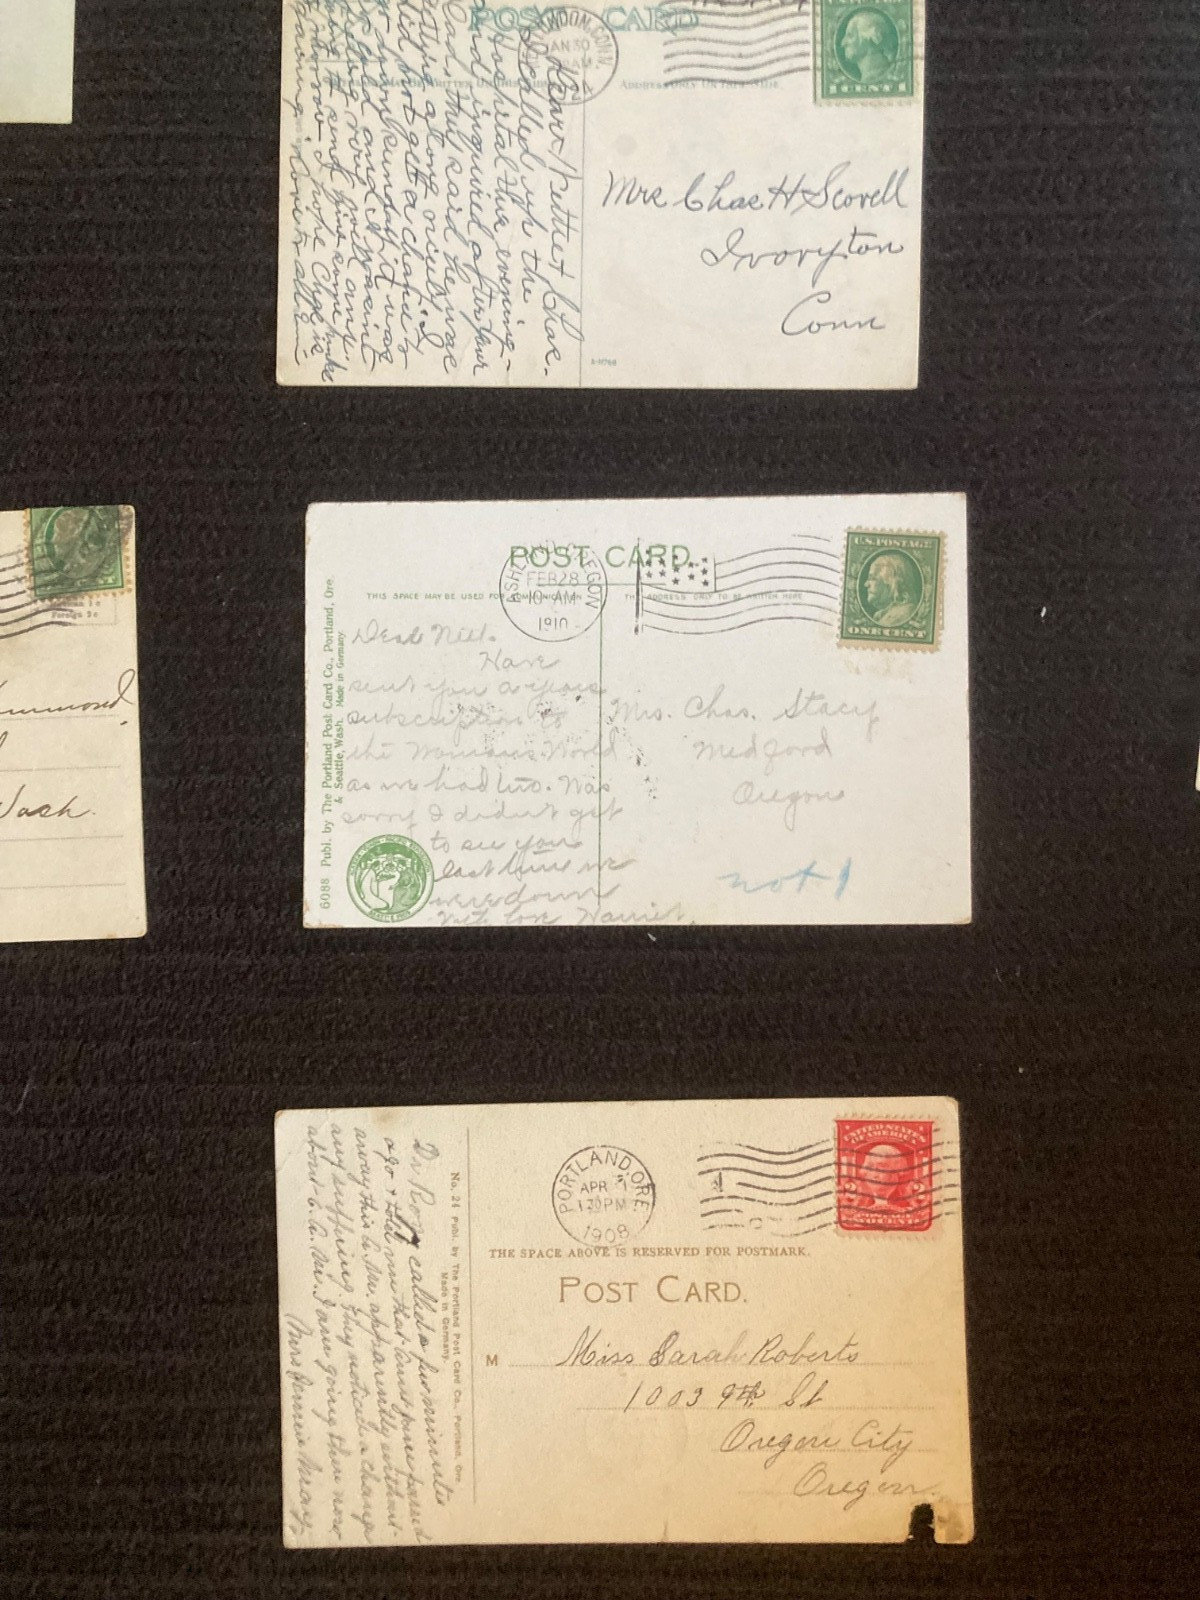 POST CARD
NEW LONDON, CONN.
JAN 30
1 CENT 1
ADDRESS ONLY ON THIS SIDE.
Dear Pettie & Chas.
I called up the
Hospital this evening
and inquired after your
they said he was
getting along nicely I
did not get a chance to
it was
so cold and
Mrs Chas H Scovell
Ivoryton
Conn
Foreign 2 c
Wash.
POST CARD
ASHLAND OREGON
FEB 28
10-AM
1910
U.S. POSTAGE
ONE CENT
THIS SPACE MAY BE USED FOR COMMUNICATION
THE ADDRESS ONLY TO BE WRITTEN HERE
6088 Publ. by The Portland Post Card Co., Portland, Ore.
& Seattle, Wash. Made in Germany
Dear Nell.
Have
sent you a years
subscription to
the Womans World
as we had two. Was
sorry I didn't get
to see you
last time we
were down
With love Harriet.
Mrs. Chas. Stacy
Medford
Oregon
not 9
PORTLAND, ORE.
APR
1 30 PM
1908
UNITED STATES
OF AMERICA
2 2
POSTAGE
TWO CENTS
THE SPACE ABOVE IS RESERVED FOR POSTMARK.
POST CARD.
No. 24 Publ. by The Portland Post Card Co., Portland, Ore.
Made in Germany.
called a few minutes
ago & told me that Aunt passed
away this A.M. apparently without
any suffering. They noticed a change
about 6 A.M. I am going there now
M Miss Sarah Roberts
1003 9th St
Oregon City
Oregon